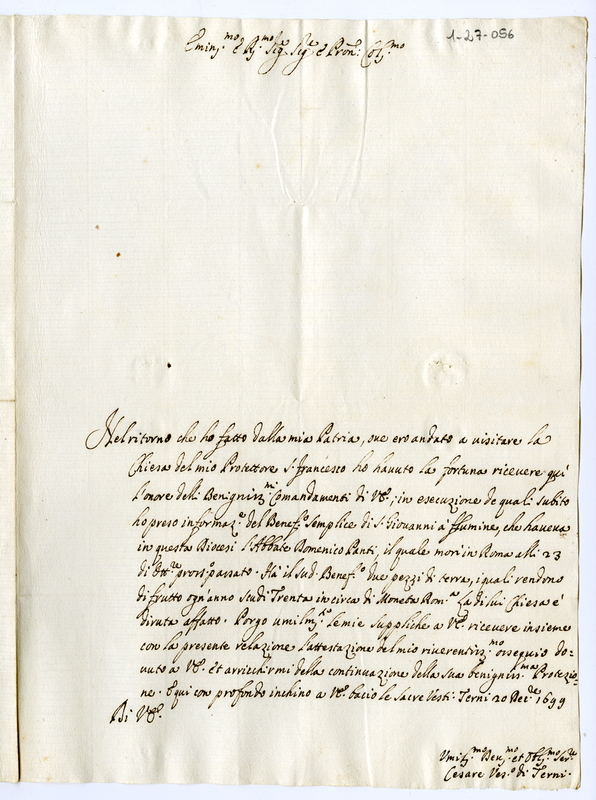 1-27-056
Emin.mo e R.mo Sig.r Sig.r e Pron. Col.mo
Nel ritorno che hò fatto dalla mia Patria, ove ero andato a visitare la
Chiesa del mio Protettore S. Francesco ho havuto la fortuna ricevere quì
l'onore delli Benigniss.mi Comandamenti di V.E.; in esecuzione de quali subito
ho preso informaz.e del Benef.o semplice di S. Giovanni a ffiumine, che haveva
in questa Diocesi l'Abbate Domenico Panti, il quale morì in Roma alli 23
di Ott.re pross.o passato. Hà il sud. Benef.o due pezzi di terra, i quali rendono
di frutto ogn'anno scudi Trenta in circa di Moneta Rom.a La di lui Chiesa è
diruta affatto. Porgo umilm.te le mie suppliche a V.E. ricevere insieme
con la presente relazione l'attestazione del mio riverentiss.mo ossequio do=
vuto a V.E. et arricchirmi della continuazione della sua benigniss.ma Protezio=
ne. E qui con profondo inchino a V.E. bacio le Sacre Vesti. Terni 20 Dec.re 1699
Di V.E.
Umil.mo Dev.mo et Obl.mo Ser.re
Cesare Ves.o di Terni.